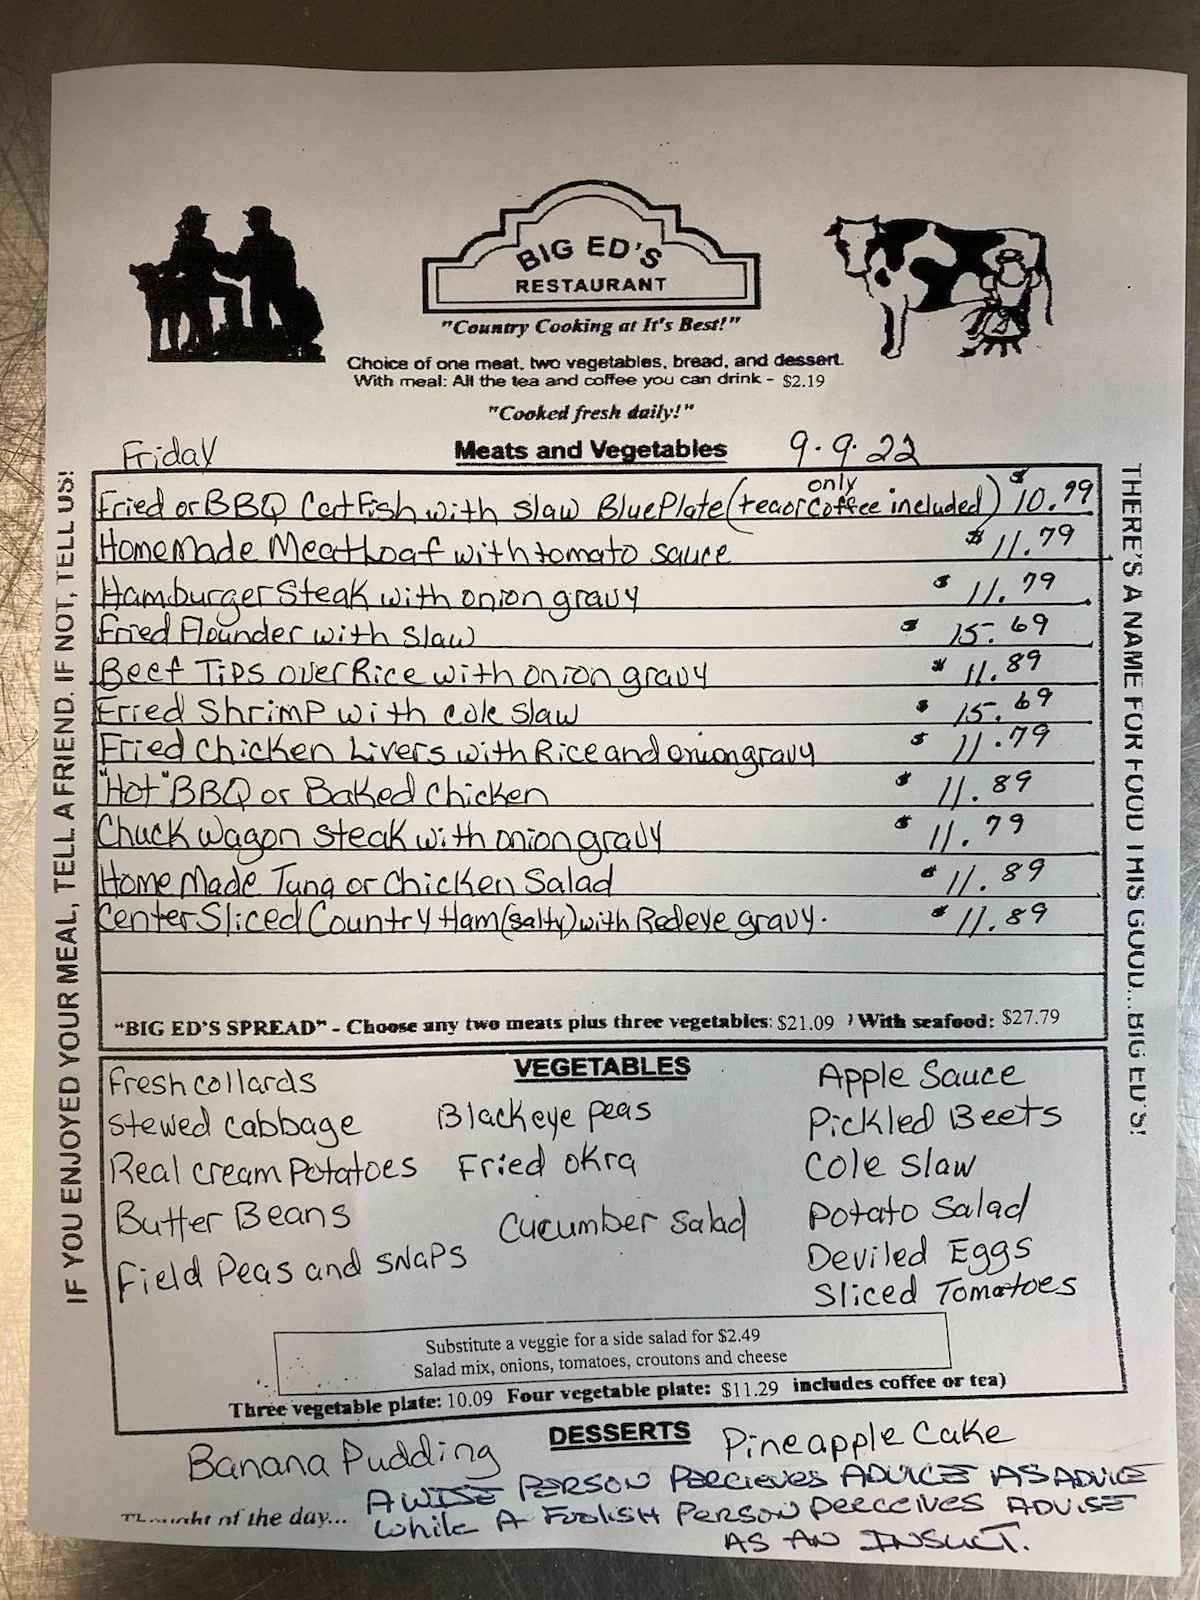 BIG ED'S
RESTAURANT
"Country Cooking at It's Best!"
Choice of one meat, two vegetables, bread, and dessert.
With meal: All the tea and coffee you can drink - $2.19
"Cooked fresh daily!"
Friday Meats and Vegetables 9.9.22
Fried or BBQ CatFish with slaw BluePlate (tea or coffee only included) $10.99
HomeMade MeatLoaf with tomato sauce $11.79
Hamburger Steak with onion gravy $11.79
Fried Flounder with Slaw $15.69
Beef Tips over Rice with onion gravy $11.89
Fried Shrimp with cole slaw $15.69
Fried Chicken Livers with Rice and onion gravy $11.79
"Hot" BBQ or Baked Chicken $11.89
Chuck wagon steak with onion gravy $11.79
Home Made Tuna or Chicken Salad $11.89
Center Sliced Country Ham (salty) with Redeye gravy. $11.89
"BIG ED'S SPREAD" - Choose any two meats plus three vegetables: $21.09 ) With seafood: $27.79
VEGETABLES
Fresh collards
Stewed cabbage
Real cream Potatoes
Butter Beans
Field Peas and snaps
Blackeye peas
Fried okra
Cucumber Salad
Apple Sauce
Pickled Beets
Cole Slaw
Potato Salad
Deviled Eggs
Sliced Tomatoes
Substitute a veggie for a side salad for $2.49
Salad mix, onions, tomatoes, croutons and cheese
Three vegetable plate: 10.09 Four vegetable plate: $11.29 includes coffee or tea)
DESSERTS
Banana Pudding
Pineapple Cake
Thought of the day... A WISE PERSON PERCIEVES ADVICE AS ADVICE
While A FOOLISH PERSON PERCEIVES ADVISE
AS AN INSULT.
IF YOU ENJOYED YOUR MEAL, TELL A FRIEND. IF NOT, TELL US!
THERE'S A NAME FOR FOOD THIS GOOD...BIG ED'S!